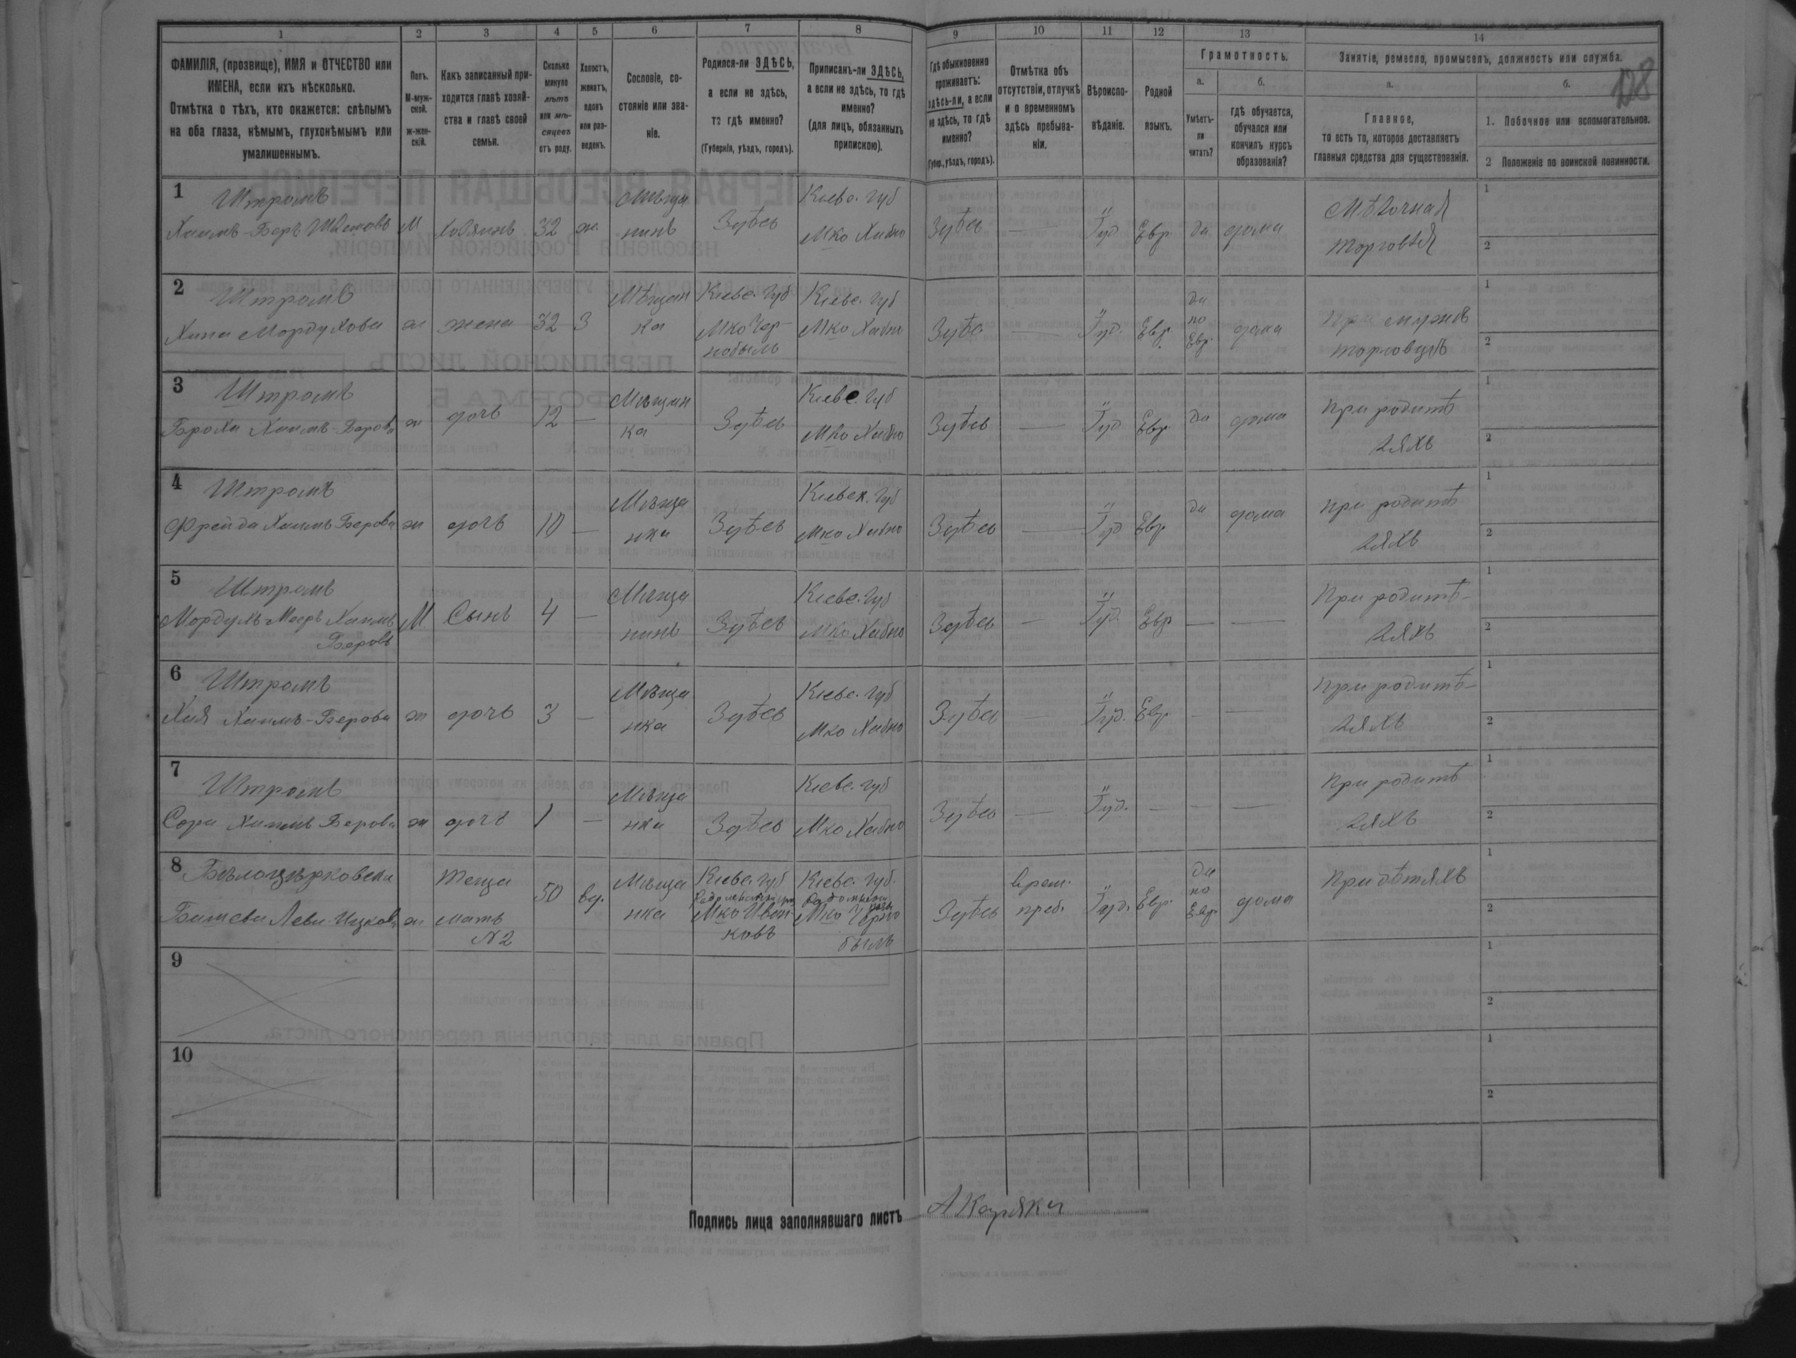 128
1 2 3 4 5 6 7 8 9 10 11 12 13 14
ФАМИЛІЯ, (прозвище), ИМЯ и ОТЧЕСТВО или ИМЕНА, если ихъ нѣсколько.
Отмѣтка о тѣхъ, кто окажется: слѣпымъ на оба глаза, нѣмымъ, глухонѣмымъ или умалишеннымъ.
Полъ.
М-муж-
ской.
ж-жен-
скій.
Какъ записанный при-
ходится главѣ хозяй-
ства и главѣ своей
семьи.
Сколько
минуло
лѣтъ
или мѣ-
сяцевъ
отъ роду.
Холостъ,
женатъ,
вдовъ
или раз-
веденъ.
Сословіе, со-
стояніе или зва-
ніе.
Родился-ли ЗДѢСЬ,
а если не здѣсь,
то гдѣ именно?
(Губернія, уѣздъ, городъ).
Приписанъ-ли ЗДѢСЬ,
а если не здѣсь, то гдѣ
именно?
(для лицъ, обязанныхъ
припискою).
Гдѣ обыкновенно
проживаетъ:
здѣсь-ли, а если
не здѣсь, то гдѣ
именно?
(Губер., уѣздъ, городъ).
Отмѣтка объ
отсутствіи, отлучкѣ
и о временномъ
здѣсь пребыва-
ніи.
Вѣроиспо-
вѣданіе.
Родной
языкъ.
Грамотность.
а.
Умѣетъ-
ли
читать?
б.
гдѣ обучается,
обучался или
кончилъ курсъ
образованія?
Занятіе, ремесло, промыселъ, должность или служба.
а.
Главное,
то есть то, которое доставляетъ
главныя средства для существованія.
б.
1. Побочное или вспомогательное.
2 Положеніе по воинской повинности.
1 Штромъ
Хаимъ-Беръ М хозяинъ 32 ж. Мѣща нинъ Здѣсь Кіевс. Губ Мко Хабно Здѣсь — Іуд. Евр. да дома Мѣлочная торговля 1 2
2 Штромъ
Хана Мордухова ж жена 32 з Мѣщан ка Кіевс. Губ Мко Чер- нобыль Кіевс. Губ Мко Хабно — Іуд. Евр. да по Евр. дома При мужѣ 1 2
3 Штромъ
Броха Хаимъ-Берова ж дочь 12 — Мѣщан ка Здѣсь Кіевс Губ Мко Хабно Здѣсь — Іуд Евр. да дома При родитѣ ляхъ 1 2
4 Штромъ
Фрейда Хаимъ Берова ж дочь 10 — Мѣща нка Здѣсь Кіевск. Губ Мко Хабно Здѣсь — Іуд Евр. да дома При родитѣ ляхъ 1 2
5 Штромъ
Хаимъ Беровъ М Сынъ 4 — Мѣща нинъ Здѣсь Кіевс. Губ Мко Хабно Здѣсь — Іуд. Евр. — — При родитѣ- ляхъ 1 2
6 Штромъ
Хая Хаимъ-Берова ж дочь 3 — Мѣща нка Здѣсь Кіевс. Губ Мко Хабно Здѣсь — Іуд. Евр. — — При родитѣ- ляхъ 1 2
7 Штромъ
Сора Хаимъ Берова ж дочь 1 — Мѣща нка Здѣсь Кіевс. Губ Мко Хабно Здѣсь — Іуд. — — — При родитѣ ляхъ 1 2
8
Ицков. ж Теща мать N2 50 вд. Мѣща нка Кіевс. Губ Мко Иван- ковъ Кіевс. Губ. Мко Черно быль Здѣсь врем. преб. Іуд. Евр. да по Евр. дома При дѣтяхъ 1 2
9 1 2
10 1 2
Подпись лица заполнявшаго листъ